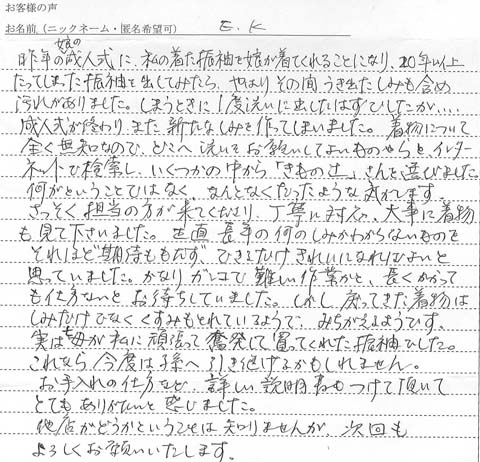 お客様の声
お名前(ニックネーム・匿名希望可) E.K
昨年の娘の成人式に、私の着た振袖を娘が着てくれることになり、20年以上
たってしまった振袖を出してみたら、やはりその間うき出たしみも含め
汚れがありました。しまうときに1度洗いに出したはずでしたが、...
成人式が終わり、また、新たなしみを作ってしまいました。着物について
全く無知なので、どこへ洗いをお願いしてよいものやらと、インター
ネットで検索し、いくつかの中から「きもの辻」さんを選びました。
何がということではなく、なんとなくだったような気がします。
さっそく担当の方が来てくださり、丁寧に対応、大事に着物
も見て下さいました。正直長年の何のしみかわからないものを
それほど期待ももたず、できるだけきれいになればよいと
思っていました。かなりガンコで難しい作業かと、長くかかって
も仕方ないとお待ちしていました。しかし戻ってきた着物は
しみだけでなくくすみもとれているようで、みちがえるようです。
実は母が私に頑張って奮発して買ってくれた振袖でした。
これなら今度は孫へ引き継げるかもしれません。
お手入れの仕方など、詳しい説明書もつけて頂いて
とてもありがたいと感じました。
他店がどうかということは知りませんが、次回も
よろしくお願いいたします。